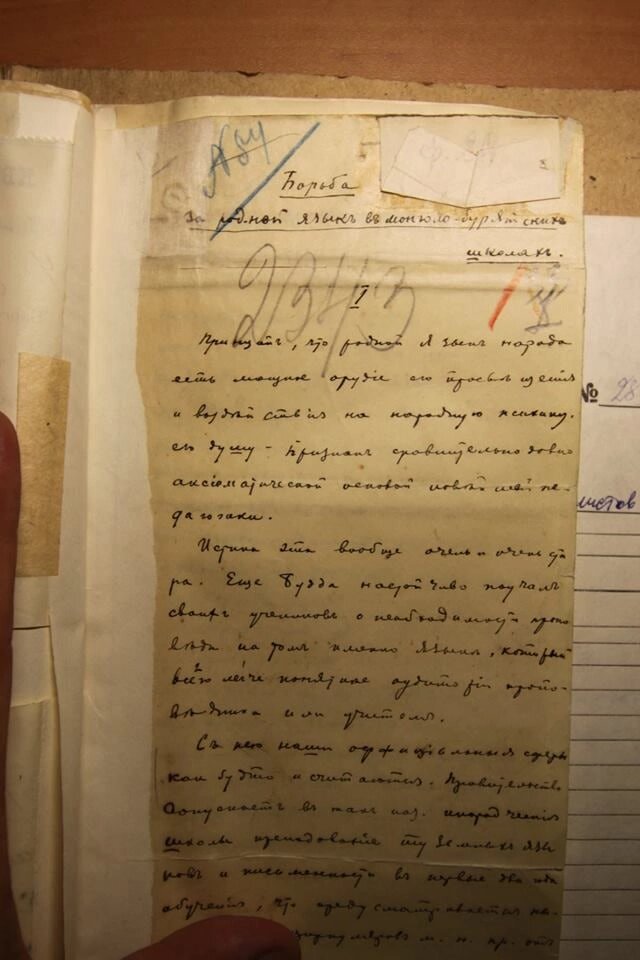 № 84
Борьба
за родной языкъ въ монголо-бурятскихъ
школахъ.
2343
I
Принципъ, что родной языкъ народа
есть мощное орудіе его просвѣщенія
и воздѣйствія на народную психику,
его душу – признанъ сравнительно давно
аксіоматической основой новѣйшей пе-
дагогики.
Истина эта вообще очень и очень ста
ра. Еще Будда настойчиво поучалъ
своихъ учениковъ о необходимости пропо
вѣди на томъ именно языкѣ, который
всего легче понятенъ аудиторіи пропо-
вѣдника или учителя.
Съ нею наши оффиціальныя сферы
какъ будто и считаются. Правительство
допускаетъ въ такъ наз. инородческія
школы преподаваніе туземныхъ язы
ковъ и письменности въ первые два года
обученія, что предусматривается
циркуляровъ м. н. пр. отъ
№ 28
листов